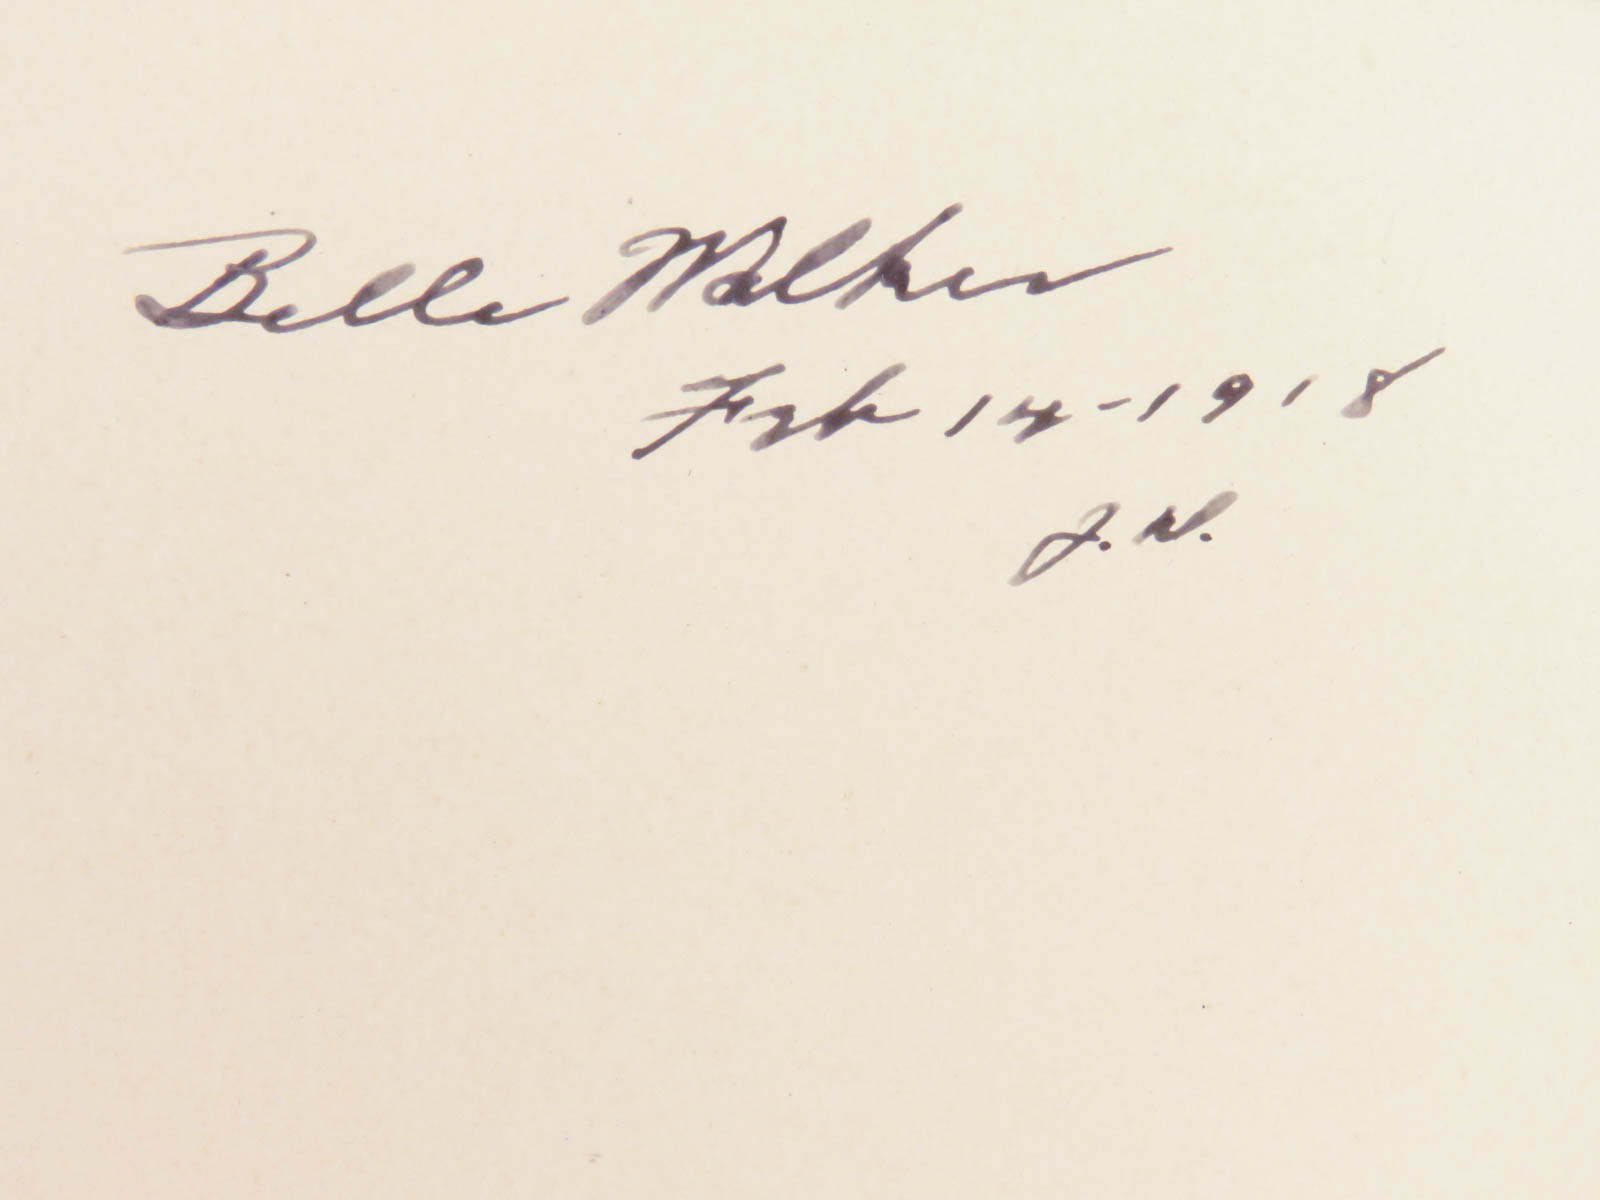 Belle Walker
Feb 14-1918
J. W.